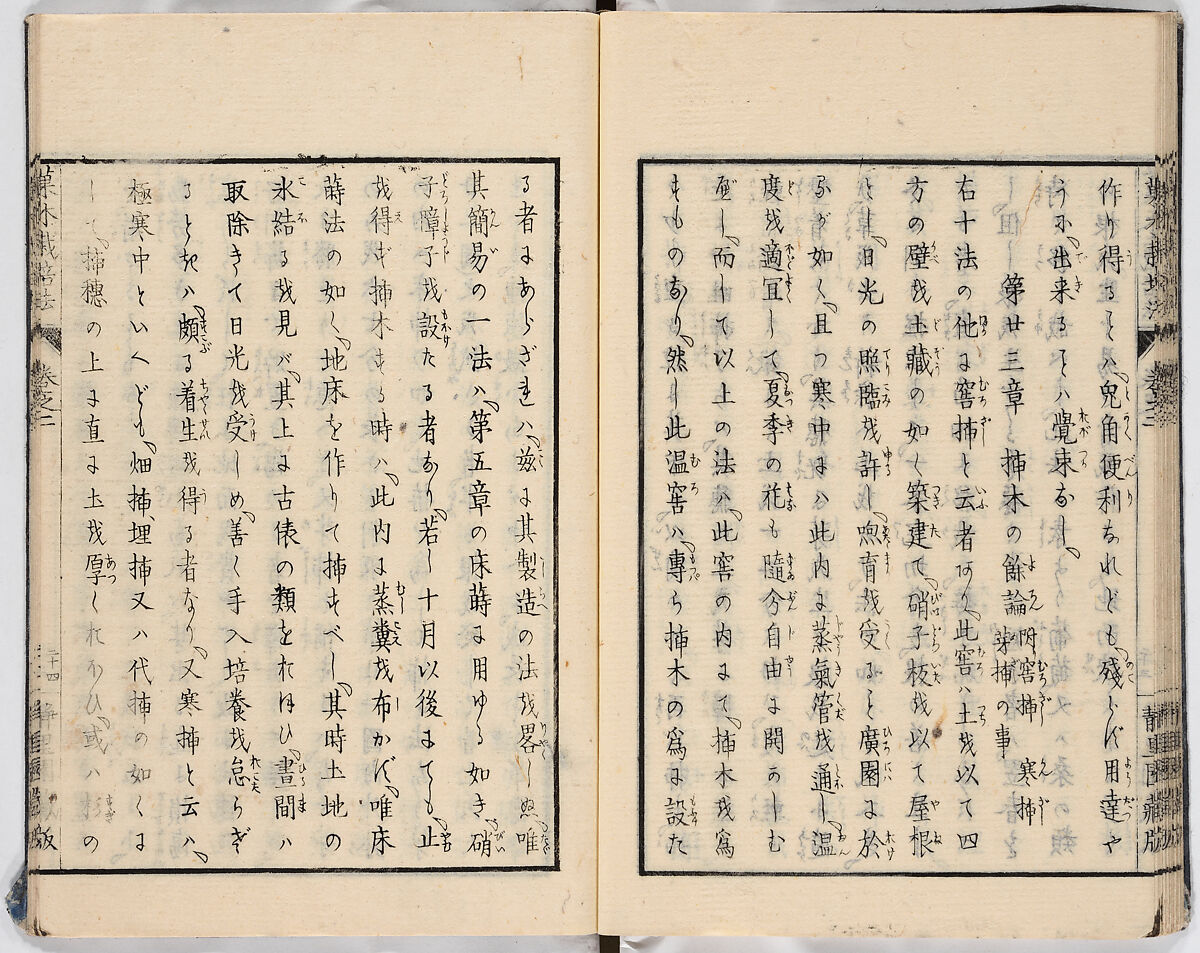 作り得ることハ、兎角便利なれども、残らず用達や
うに出来ることハ覺束なし、
第廿三章 挿木の餘論 附窖挿 寒挿
葵挿の事
右十法の他に窖挿と云者あり、此窖ハ土を以て四
方の壁を土藏の如く築建て、硝子板を以て屋根
とし、日光の照臨を許し、煦育を受ること廣園に於
るが如く、且つ寒中にハ此内に蒸氣管を通し、温
度を適宜して、夏季の花も隨分自由に開かしむ
べし、而して以上の法ハ、此窖の内にて、挿木を爲
すものなり、然し此温窖ハ、專ら挿木の爲に設た
る者にあらざれハ、茲に其製造の法を畧しぬ、唯
其簡易の一法ハ、第五章の床蒔に用ゆる如き、硝
子障子を設たる者なり、若し十月以後にても、止
を得ず挿木する時ハ、此内に蒸糞を布かず、唯床
蒔法の如く、地床を作りて挿すべし、其時土地の
氷結るを見バ、其上に古俵の類をおほひ、晝間ハ
取除きて日光を受しめ、善く手入培養を怠らざ
るときハ、頗る着生を得る者なり、又寒挿と云ハ、
極寒中といへども、畑挿、埋挿又ハ代挿の如くに
して、挿穗の上に直に土を厚くおほひ、或ハ杉の
菓木栽培法 卷之二
二十四
靜里園藏版